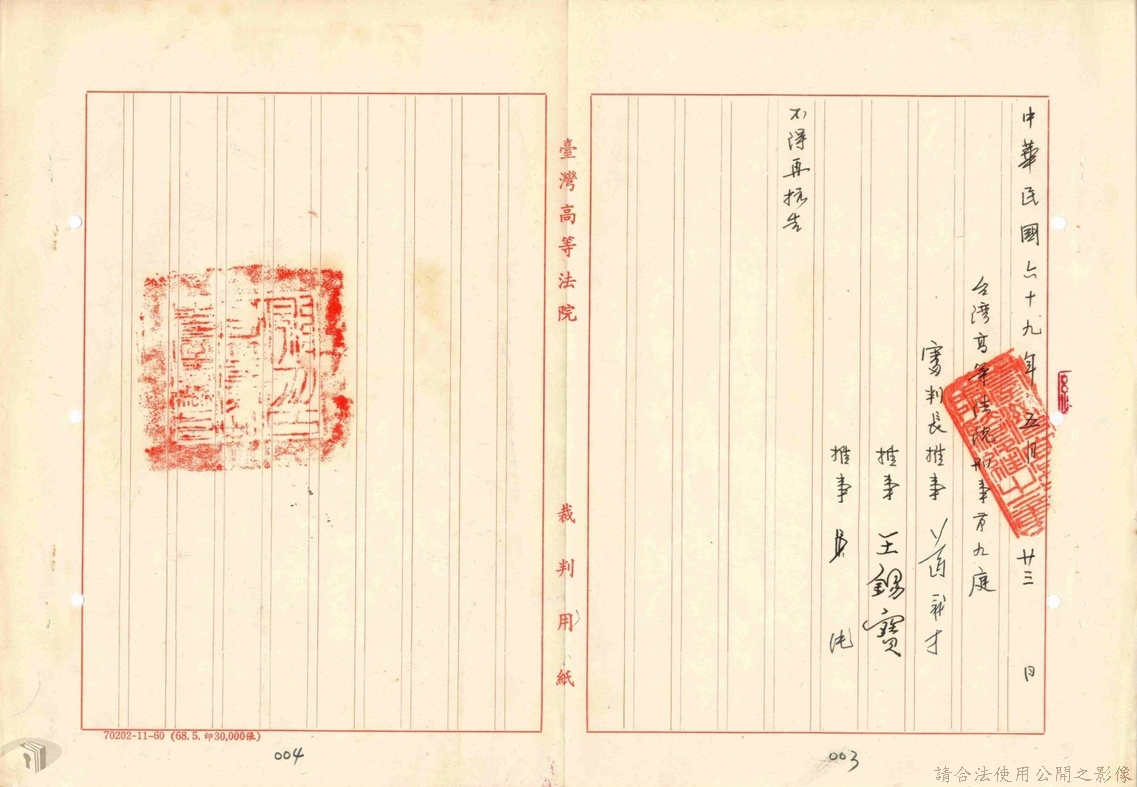 中華民國六十九年五月廿三日
台灣高等法院刑事第九庭
審判長推事
推事 王錫寶
推事 吳
不得再抗告
003
臺灣高等法院
裁判用紙
70202-11-60 (68.5.印30,000張)
004
請合法使用公開之影像